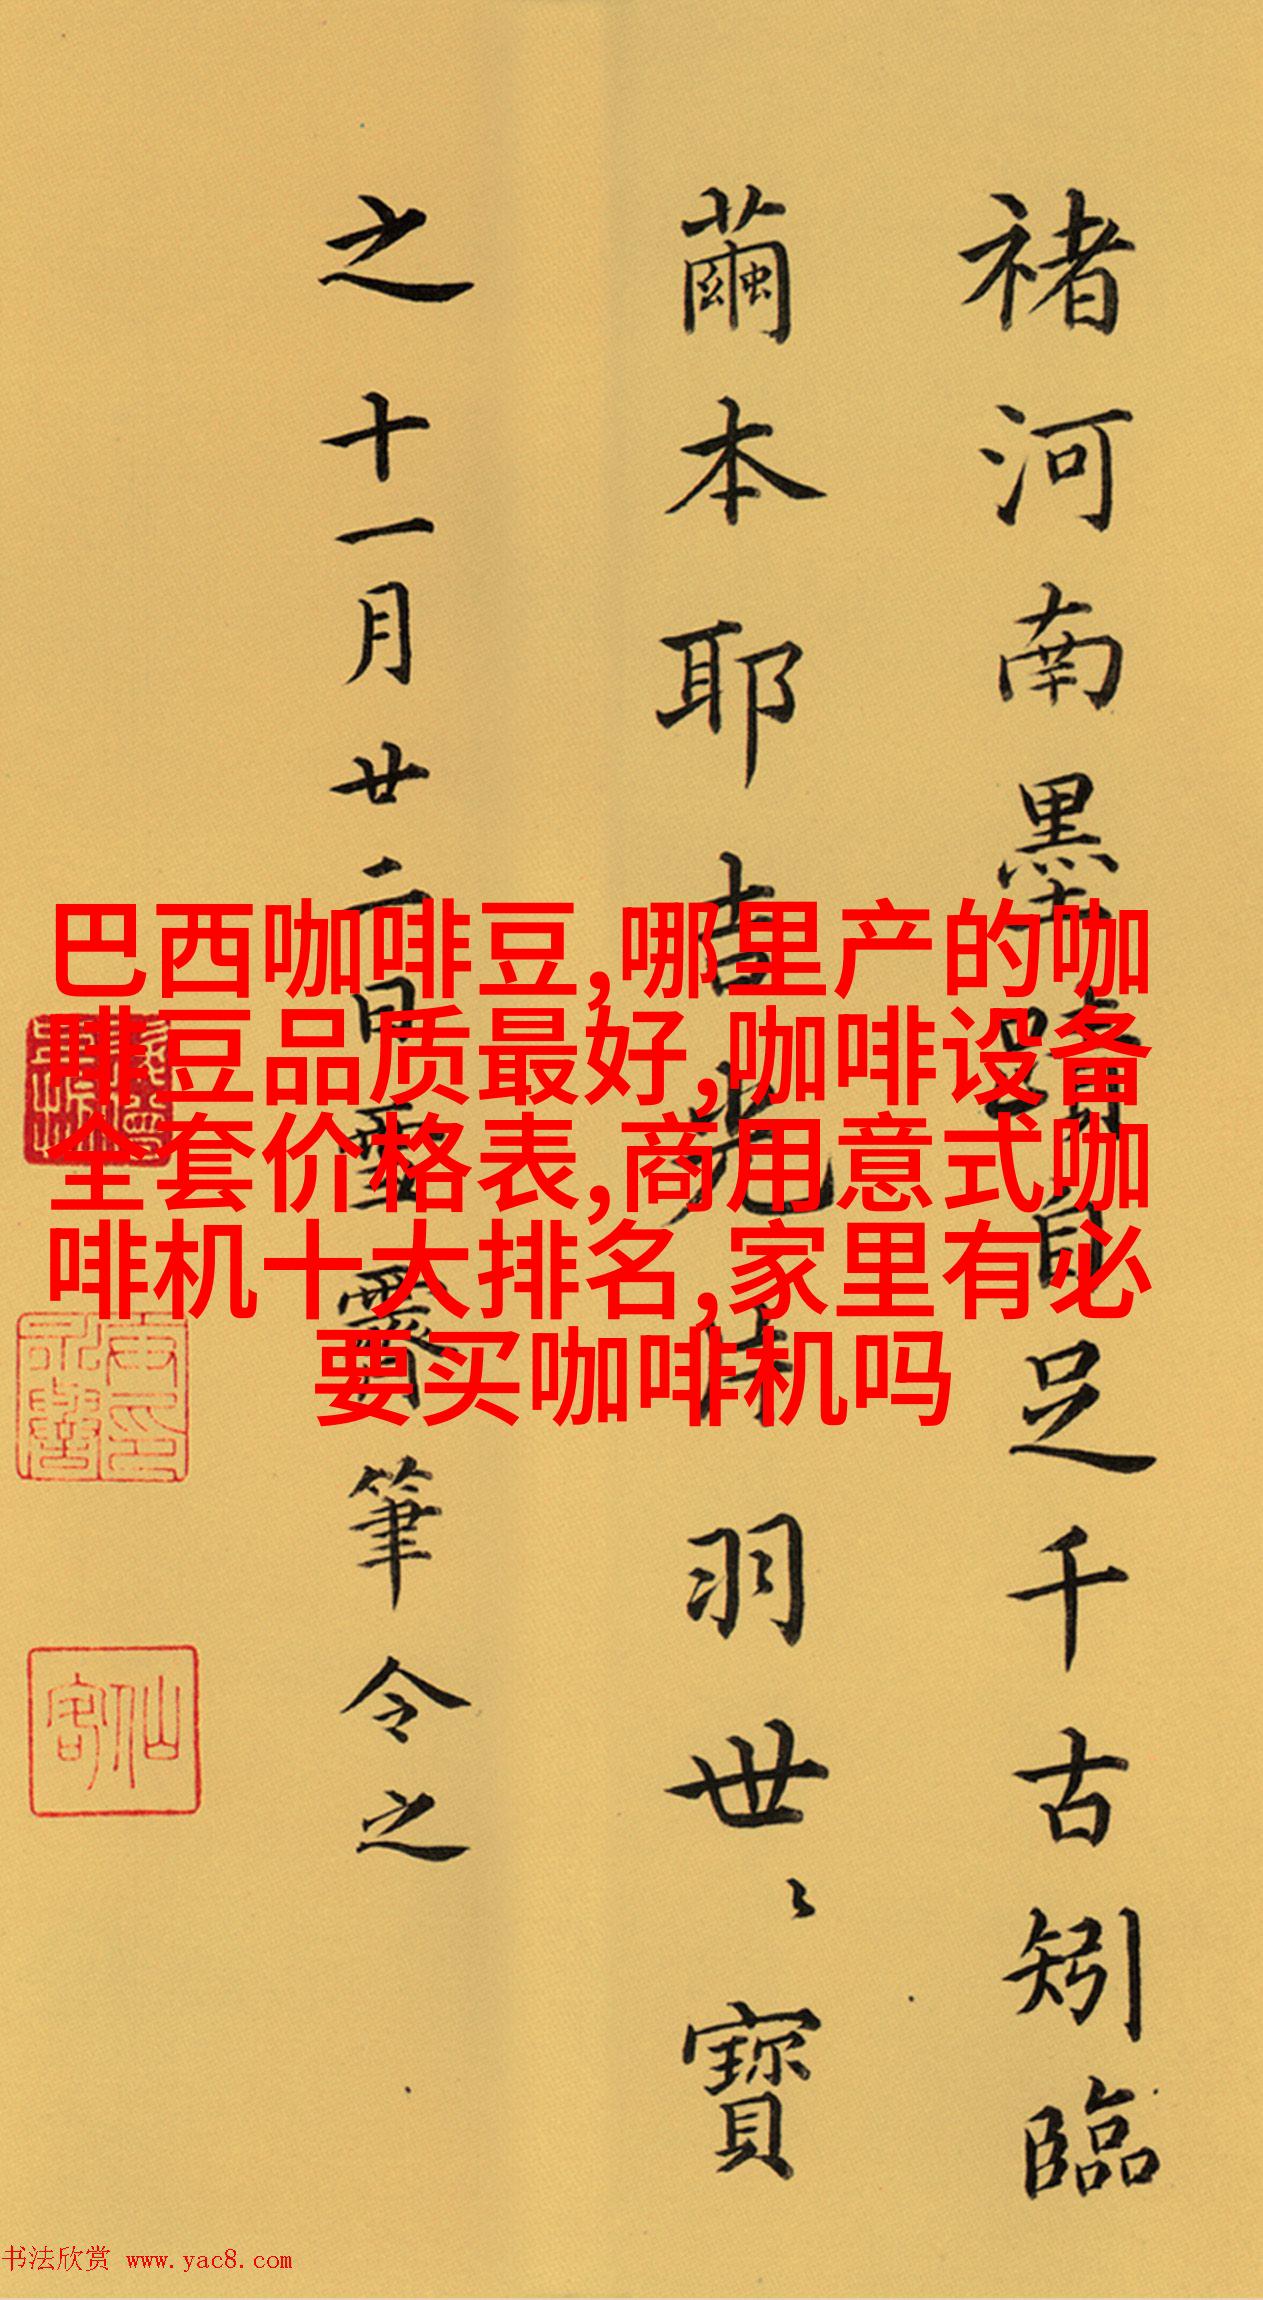 褚河南墨蹟自足千古矧臨
繭本耶吉光片羽世〻寶
之十一月廿二日雪霽筆令之
巴西咖啡豆,哪里产的咖
啡豆品质最好,咖啡设备
全套价格表,商用意式咖
啡机十大排名,家里有必
要买咖啡机吗
仙客
书法欣赏 www.yac8.com